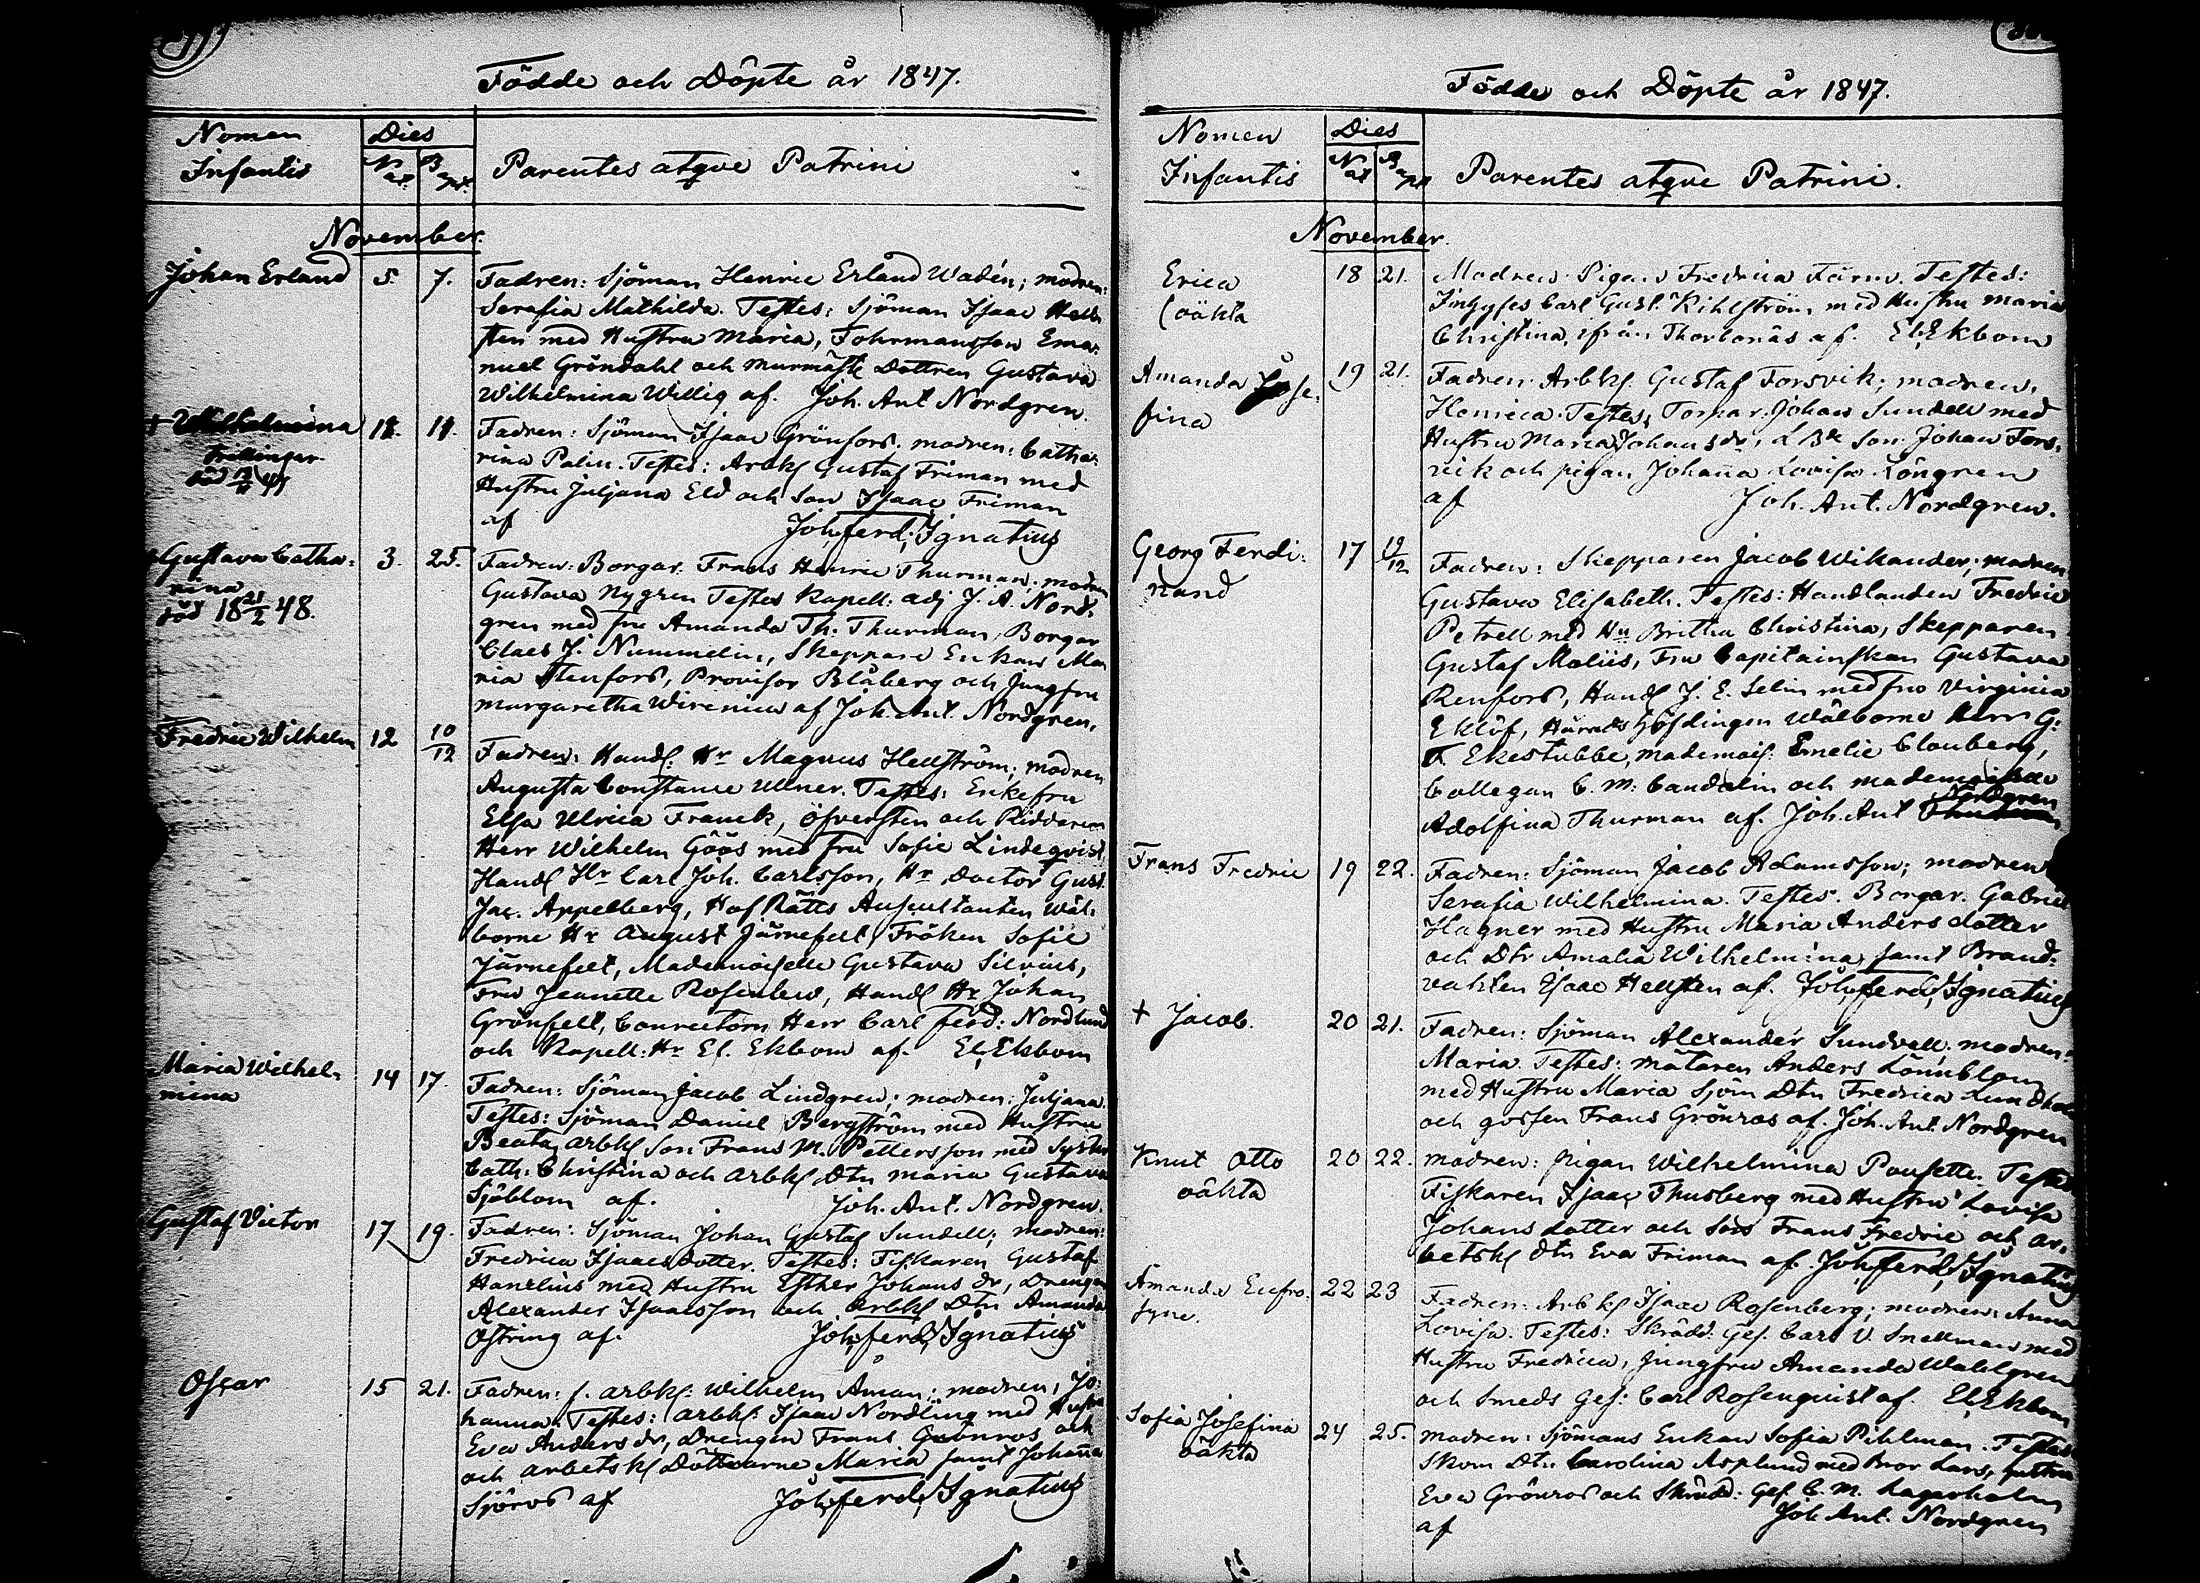 Födde och Döpte år 1847.
Nomen Infantis
Dies
Nat. Bapt.
Parentes atqve Patrini
November.
Johan Erland 5. 7. Fadren: Sjöman Henric Erland Wadén; modren:
Serafia Mathilda. Testes: Sjöman Isaac Hell-
sten med Hustru Maria, Fohrmansson Ema-
nuel Gröndahl och murmäst: Dottren Gustava
Wilhelmina Willig af. Joh. Ant Nordgren.
+ Wilhelmina 11. 11. Fadren: Sjöman Isaac Grönfors. modren: Catha-
Trillingar
rina Palin. Testes: Arbks Gustaf Friman med
Hustru Juljana Eld och Son Isaac Friman
af Joh. ferd. Ignatius
Gustava Catha- 3. 25. Fadren: Borgar. Frans Henric Thurman; modren
rina
död 18 21/2 48.
Gustava Nygren Testes Kapell: adj J. A. Nord-
gren med fru Amanda Th. Thurman, Borgar
Claes J. Nummelin, Skeppare Enkan Ma-
ria Stenfors, Provisor Blåberg och Jungfru
Margaretha Wirenius af Joh. Ant. Nordgren.
Fredric Wilhelm 12 10/12 Fadren: Handl. Hr Magnus Hellström; modren
Augusta Constance Ullner. Testes: Enkefru
Elsa Ulrica Franck, Öfversten och Riddaren
Herr Wilhelm Göös med fru Sofie Lindeqvist
Handl Hr Carl Joh. Carlsson, Hr Doctor Gust.
Jac. Appelberg, HofRätts Auscultanten Wäl-
borne Hr August Järnefelt, Fröken Sofie
Järnefelt, Mademoiselle Gustava Silvius,
Fru Jeanette Rosenlew, Handl Hr Johan
Grönfelt, Conrectorn Herr Carl ferd: Nordlund
och Kapell: Hr El. Ekbom af. El. Ekbom
Maria Wilhel- 14 17. Fadren: Sjöman Jacob Lindgren; modren: Juljana.
mina
Testes: Sjöman Daniel Bergström med Hustru
Beata, arbks son Frans M. Pettersson med Syster
Cath: Christina och arbks Dtn Maria Gustava
Sjöblom af. Joh. Ant. Nordgren.
Gustaf Victor 17 19. Fadren: Sjöman Johan Gustaf Sundell; modren:
Fredrica Isaacsdotter. Testes: Fiskaren Gustaf
Hanelius med Hustru Esther Johans dr, Drengen
Alexander Isaacsson och arbks Dtn Amanda
Östring af. Joh. ferd. Ignatius
Oscar 15 21. Fadren: f. arbks: Wilhelm Åman; modren, Jo-
hanna: Testes: arbks: Isaac Nordling med Hustru
Eva Anders dr, Drengen Frans Grönros och
och arbetsks Döttrarne Maria samt Johanna
Sjöros af Joh. ferd. Ignatius
Födde och Döpte år 1847.
Nomen Infantis
Dies
Nat Bapt
Parentes atqve Patrini.
November.
Erica 18 21. Modren Pigan Fredrica Färm. Testes:
(oäkta
Inhyses Carl Gust. Kihlström med Hustru Maria
Christina, ifrån Thorbonäs af. El. Ekbom
Amanda Jose- 19 21. Fadren: Arbks. Gustaf Forsvik; modren,
fina
Henrica. Testes: Torpar. Johan Sundell med
Hustru Maria Johans dr, Son Johan Fors-
vik och pigan Johanna Lovisa Löngren
af Joh. Ant. Nordgren.
Georg Ferdi- 17 19/12 Fadren: Skepparen Jacob Wikander; modren
nand
Gustava Elisabeth. Testes: Handlanden Fredric
Petrell med Hu Britta Christina, Skepparen
Gustaf Moliis, Fru Capitainskan Gustava
Renfors, Handl J. E. Selin med fru Virginia
Eklöf, Häradshöfdingen Wälborne Herr G.
F. Ekestubbe, mademois: Emelie Clouberg,
Collegan C. M. Candelin och mademoiselle
Adolfina Thurman af. Joh. Ant Nordgren
Frans Fredric 19 22. Fadren: Sjöman Jacob Adamsson; modren
Serafia Wilhelmina. Testes. Borgar. Gabriel
Hagner med Hustru Maria Anders dotter
och Dtr Amalia Wilhelmina samt Brand-
vakten Isaac Hellsten af. Joh. ferd. Ignatius
+ Jacob. 20 21. Fadren: Sjöman Alexander Sundvall. modren
Maria. Testes: mätaren Anders Lönnblom
med Hustru Maria Sjöm Dtn Fredrica
och gossen Frans Grönros af. Joh. Ant. Nordgren
Knut Otto 20 22. modren: pigan Wilhelmina Pousette. Testes
oäkta
Fiskaren Isaac Thusberg med Hustru Lovisa
Johans dotter och Son Frans Fredric och ar-
betsks dtn Eva Friman af. Joh. ferd. Ignatius
Amanda Eufro- 22 23 Fadren: Arbks Isaac Rosenberg; modren: Anna
syne.
Lovisa. Testes: Skrädd: Ges. Carl V. Snellman med
Hustru Fredrica, Jungfru Amanda Wahlgren
och Smeds Ges: Carl Rosenquist af. El. Ekbom
Sofia Josefina 24 25. modren: Sjömans Enkan Sofia Pihlman. Testes
oäkta
Skom Dtn Carolina Asplund med Bror Lars, hustru
Eva Grönros och Skrädd: Ges C. M. Lagerholm
af Joh Ant. Nordgren